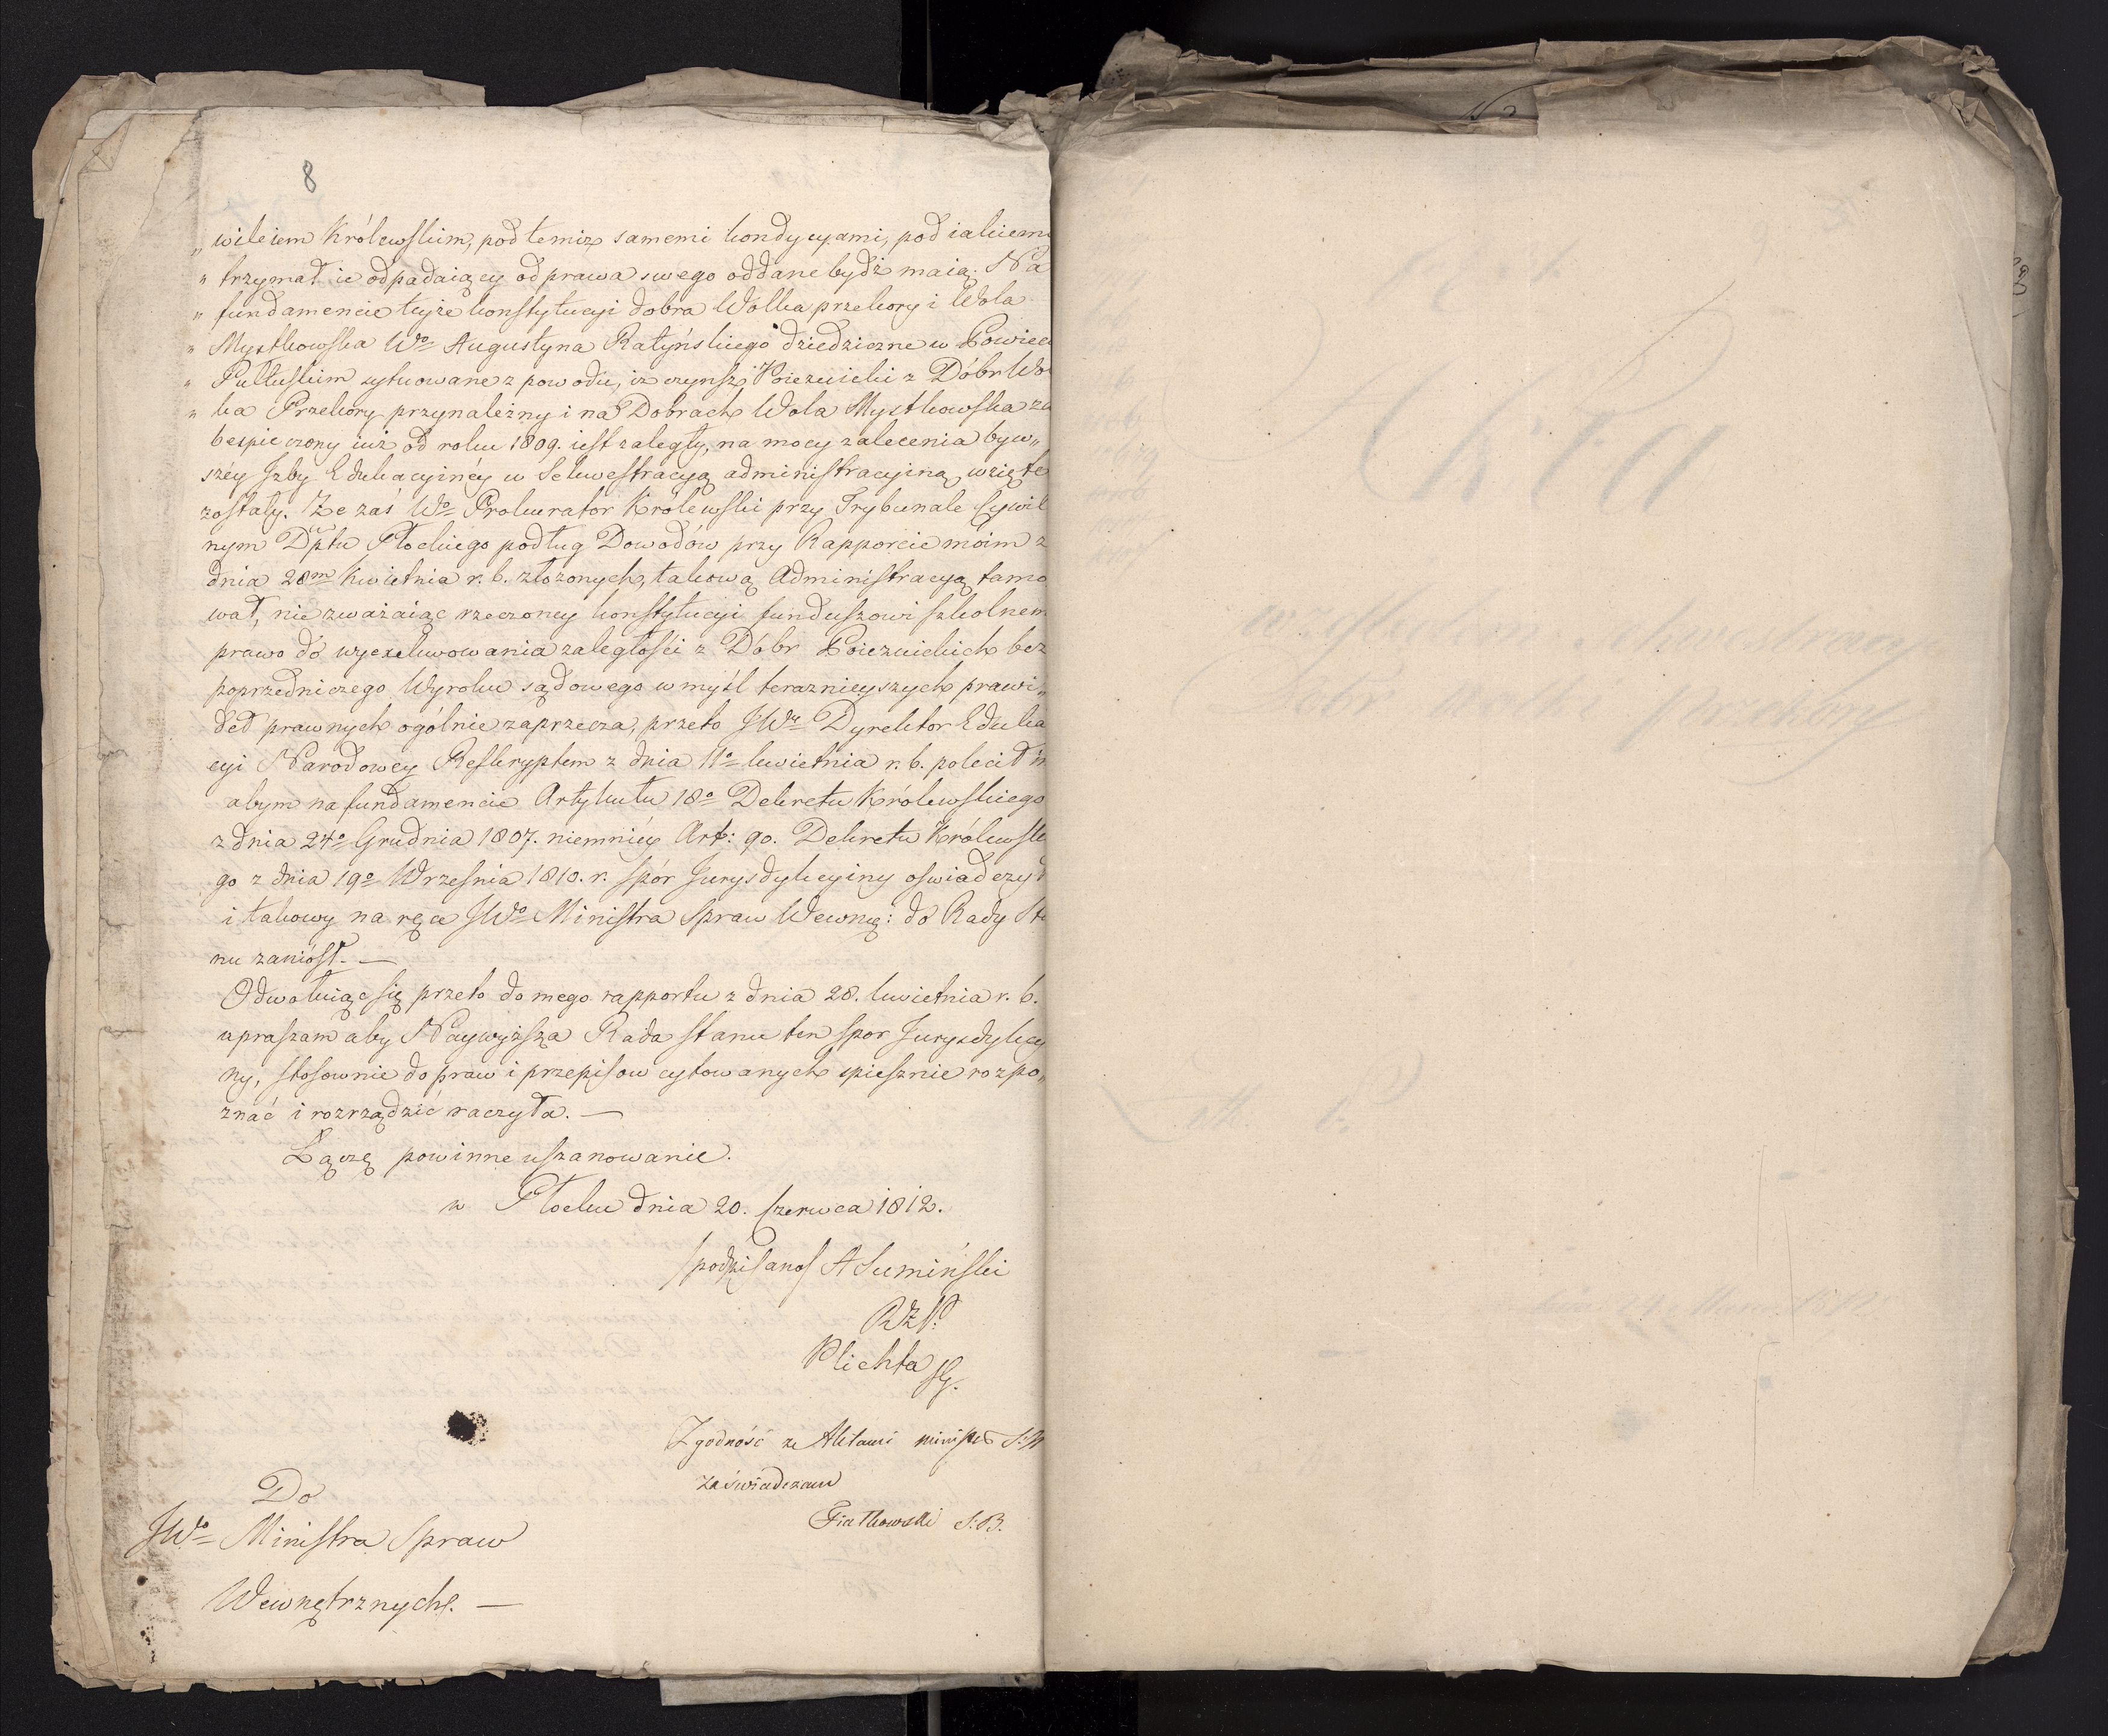 8
„ wileiem Królewskim, pod temiż samemi kondycyami, pod iakiemi
„ trzymał ie odpadaiący od prawa swego oddane bydź maią. Na
„ fundamencie teyże konstytucyi dobra Wolka przekory i Wola
„ Mystkowska Wo Augustyna Ratyńskiego dziedziczne w Powiec
„ Pułtuskim sytuowane z powodu, iż czynsz Poiezuicki z Dóbr Wol
„ ka Przekory przynależny i na Dobrach Wola Mystkowska za
bespieczony iuż od roku 1809. iest zaległy, na mocy zalecenia byw„
széy Izby Edukacyinéy w Sekwestracyą administracyiną wzięte
zostały. Że zaś Wo Prokurator Królewski przy Trybunale Cywil
nym Dptu Płockiego podług Dowodów przy Rapporcie moim z
dnia 28m Kwietnia r. b. złożonych, takową Administracyą tamo
wał, nie zważaiąc rzeczoney konstytucyi funduszowi szkolnem
prawo do wyexekwowania zaległości z Dóbr Poiezuickich bez
poprzedniczego Wyroku sądowego w myśl teraznieyszych prawi„
deł prawnych ogólnie zaprzecza, przeto JWy Dyrektor Eduka
cyi Narodowey Reskryptem z dnia 11o kwietnia r. b. polecił m
abym na fundamencie Artykułu 18o Dekretu Królewskiego
z dnia 24o Grudnia 1807. niemniéy Art: 90. Dekretu Królewski
go z dnia 19o Września 1810. r. spór Jurysdykcyiny oswiadczył
i takowy na ręce JWo Ministra Spraw Wewnę: do Rady Sta
nu zaniósł. —
Odwołuiąc się przeto do mego rapportu z dnia 28. kwietnia r. b.
upraszam aby Naywyższa Rada stanu ten spor Jurysdykcy
ny, stosownie do praw i przepisow cytowanych spiesznie rozpo„
znać i rozrządzić raczyła. —
Łączę powinne uszanowanie.
w Płocku dnia 20. Czerwca 1812.
/podpisano/ A Sumiński
Plichta SJ.
Zgodność ze Aktami minister S: W
zaświadczam
Fiatkowski S:B.
Do
JWo Ministra Spraw
Wewnętrznych. —